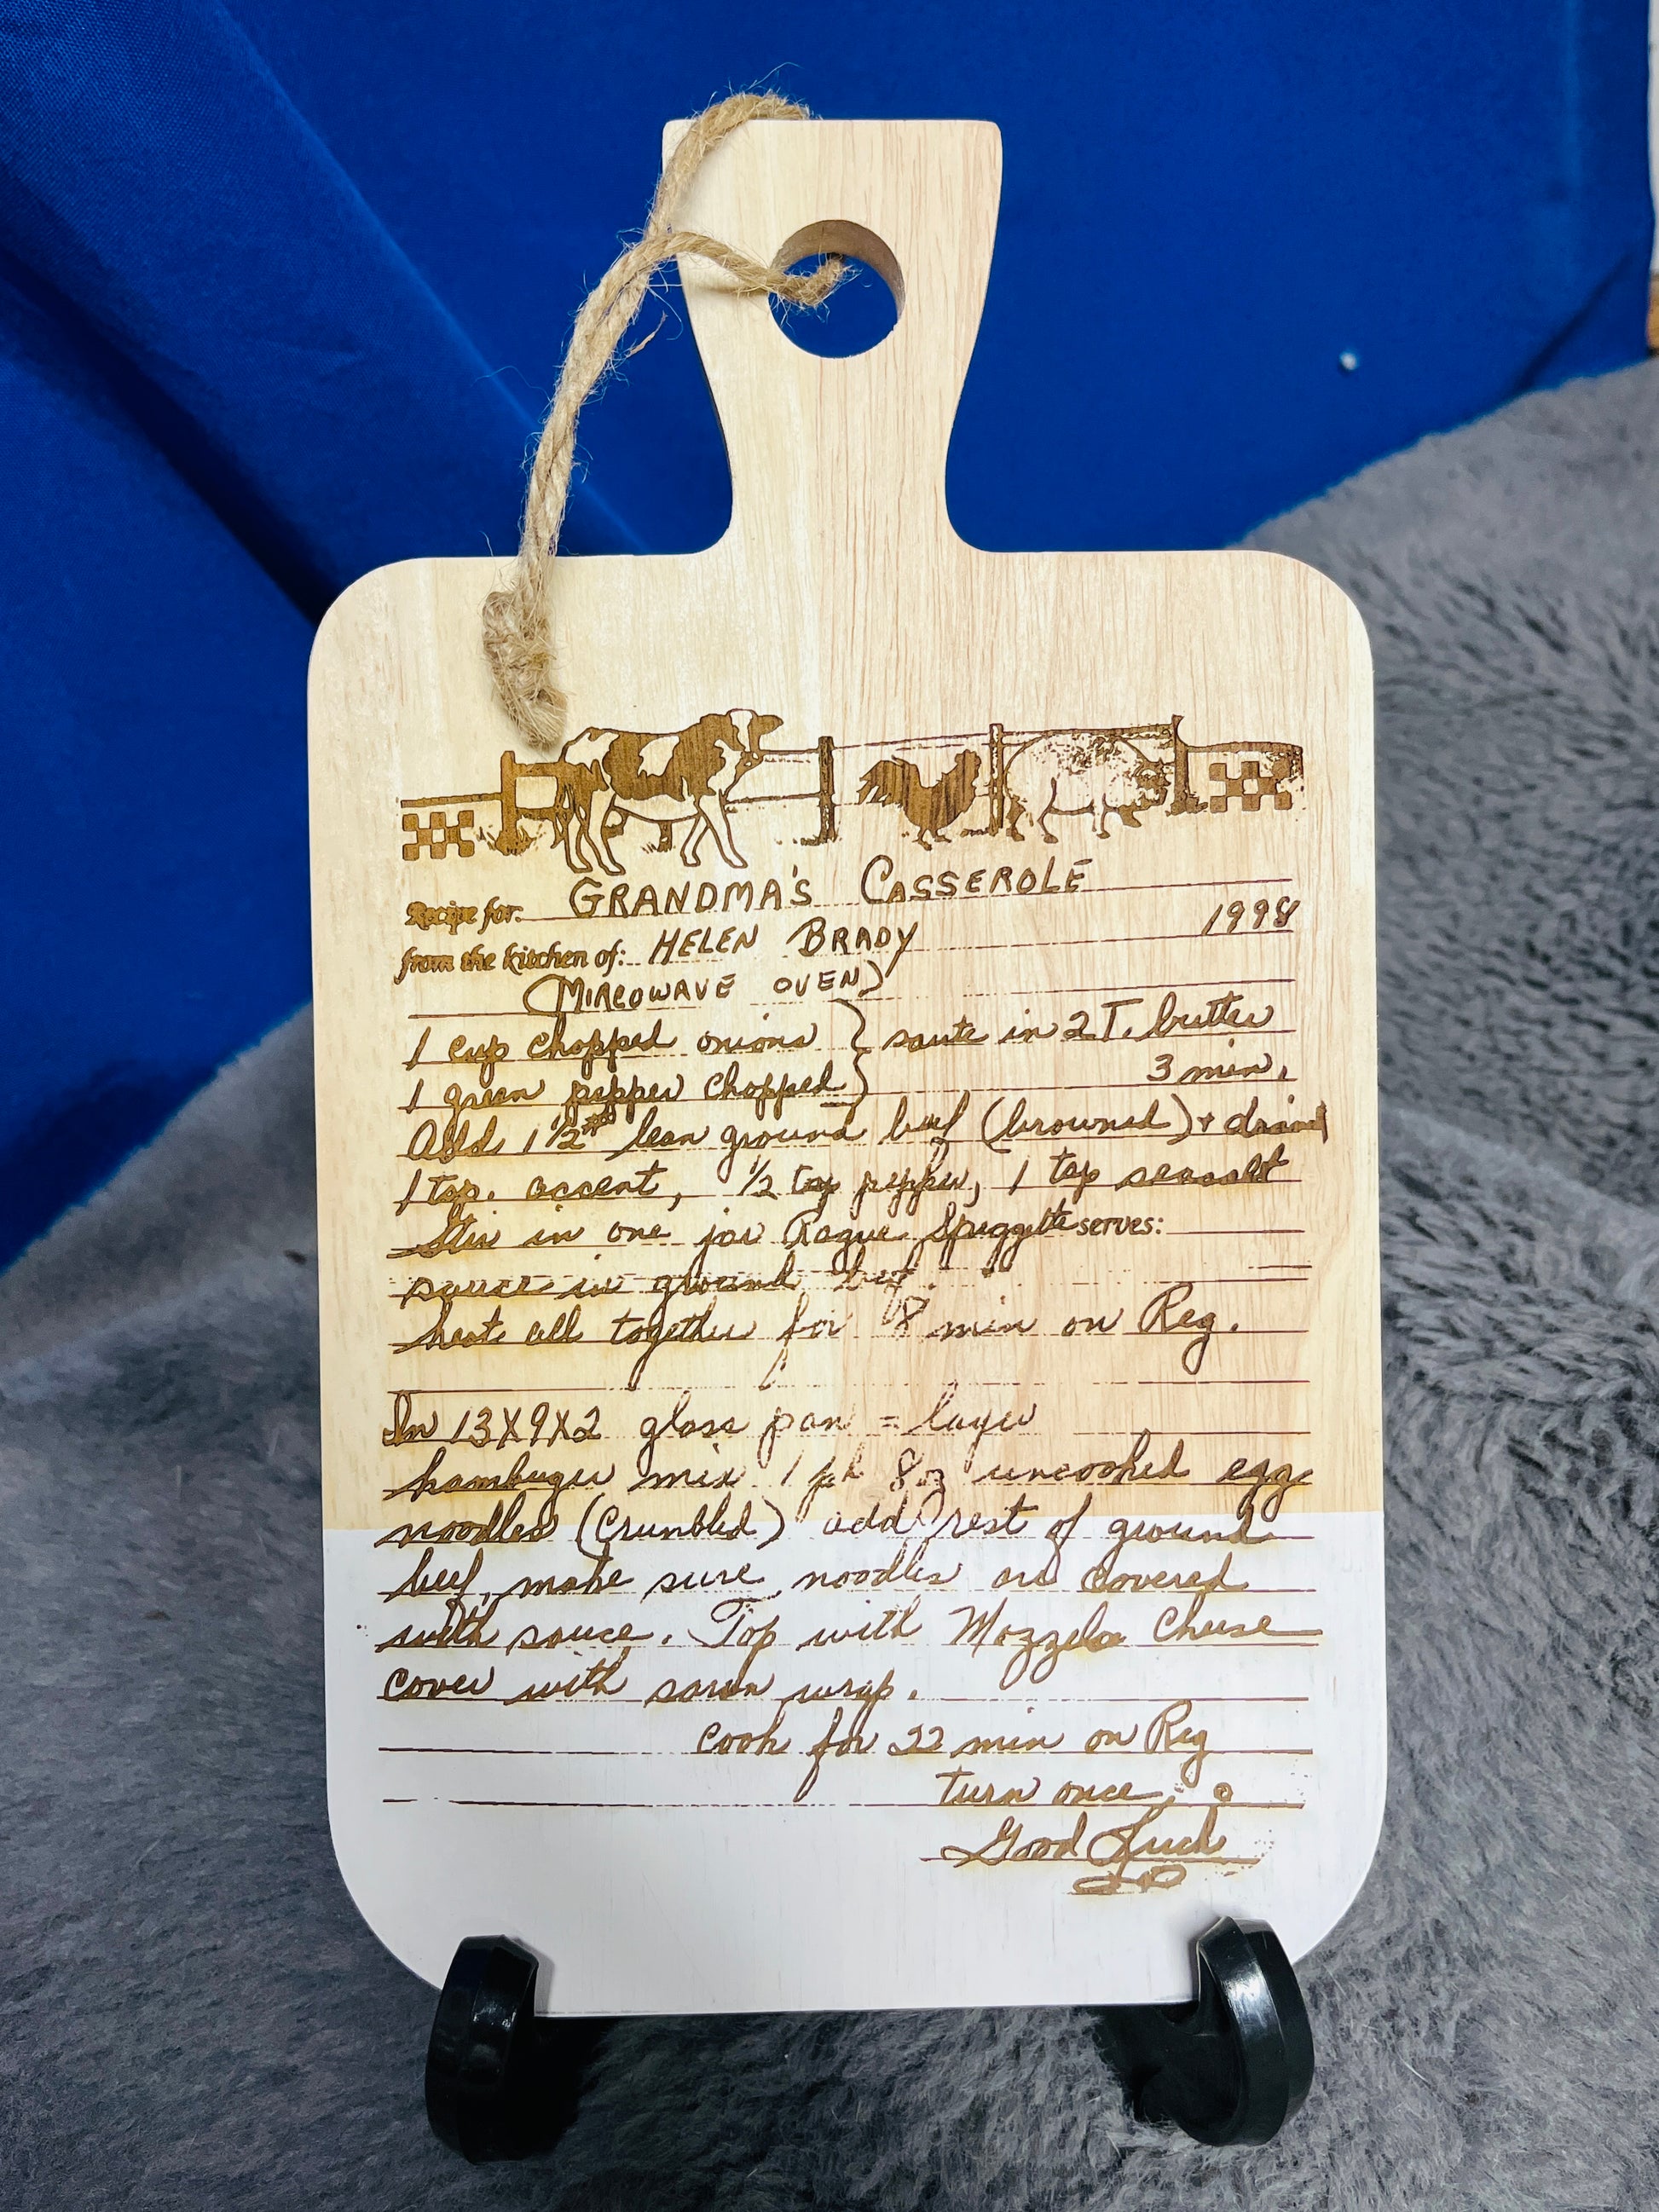 Recipe for: GRANDMA'S CASSEROLE
from the kitchen of: HELEN BRADY 1998
(MIRCOWAVE OVEN)
1 cup chopped onions } saute in 2 T. butter
1 green pepper chopped } 3 min.
Add 1 1/2# lean ground beef (browned) + drained
1 tsp. accent, 1/2 tsp pepper, 1 tsp seasalt
Stir in one jar Rague Spaggette serves:
sauce in ground beef.
heat all together for 8 min on Reg.
In 13X9X2 glass pan = layer
hambuger mix 1 pk 8oz uncooked egg
noodles (Crumbled) add rest of ground
beef, make sure noodles are covered
with sauce. Top with Mozzela Cheese
cover with saran wrap.
cook for 22 min on Reg
turn once.
Good Luck